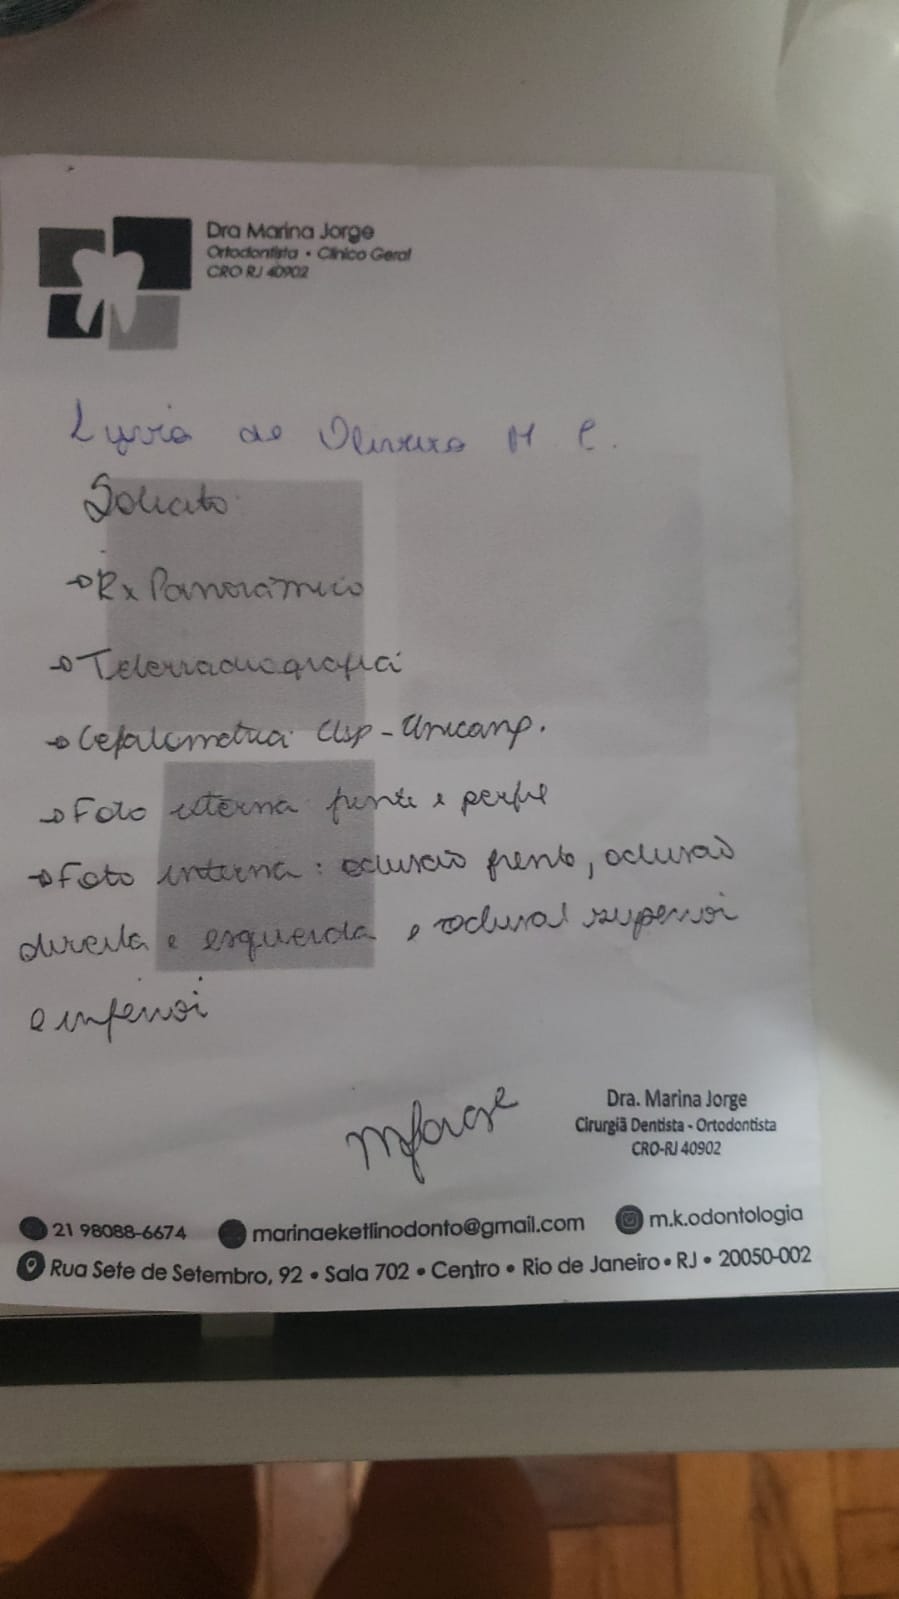 Dra Marina Jorge
Ortodontista • Clínico Geral
CRO RJ 40902
Lyvia de Oliveira M C.
Solicito
→ Rx Panorâmico
→ Telerradiografia
→ Cefalometria Usp - Unicamp.
→ Foto externa frente e perfil
→ Foto interna: oclusão frente, oclusão
direita e esquerda e oclusal superior
e inferior
MJorge
Dra. Marina Jorge
Cirurgiã Dentista - Ortodontista
CRO-RJ 40902
21 98088-6674 marinaeketlinodonto@gmail.com m.k.odontologia
Rua Sete de Setembro, 92 • Sala 702 • Centro • Rio de Janeiro • RJ • 20050-002